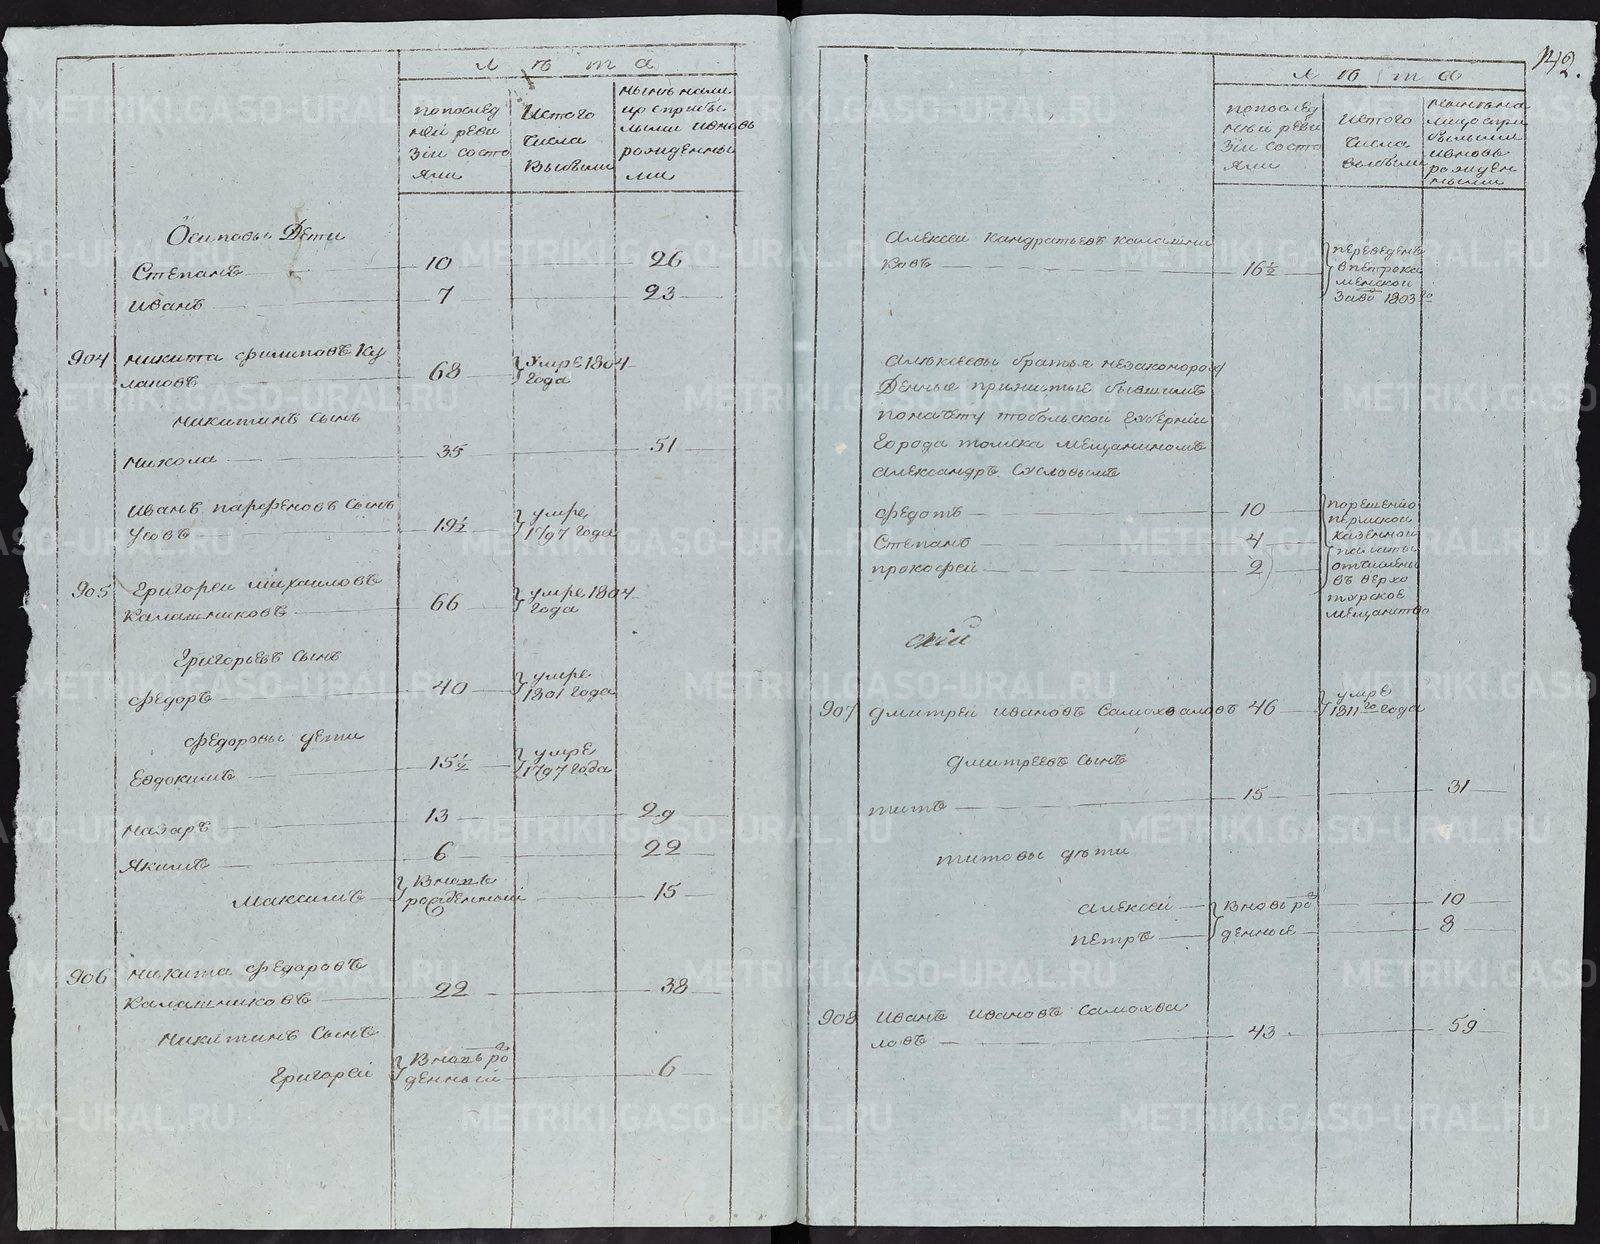 лѣта
попослед
ней реви
зіи состо
яли
Истого
числа
выбыли
ныне нали
цо сприбы
лыми ивновь
рожденны
ми
Осиповы Дети
Степанъ 10 26
Иванъ 7 23
904 Никита Филиповъ Ку
лаповъ 68 умре 1804
года
Никитинъ сынъ
Никола 35 51
Иванъ парфеновъ сынъ
Усовъ 19½ умре
1797 года
905 Григореи михаиловъ
Калашниковъ 66 умре 1804
года
Григорьевъ сынъ
Федоръ 40 умре
1801 года
Федоровы дети
Евдокимъ 15½ умре
1797 года
Назаръ 13 29
Якимъ 6 22
Максимъ Вновь
рожденный 15
906 Никита Федаровъ
Калашниковъ 22 38
Никитинъ сынъ
Григорей Вновь ро
денный 6
142.
лѣта
попослед
ней реви
зіи состо
яли
Истого
числа
выбыли
ныне на
лицо спри
былыми
ивновь
рожден
ными
Алексей Кандратьевъ калашни
ковъ 16½ переведенъ
впетрока
менской
заво 1803го
Алексеевы братья незаконорож
Денные прижитые бывшимъ
поначету тобольской Губерніи
Города томска мещаниномъ
Александръ Сусловымъ
Федотъ 10
Степанъ 4
прокофей 2
порешению
пермской
казенной
палаты
отчислены
въ верхо
турское
мещанство
907 Дмитрей Ивановъ Самохваловъ 46 умре
1811го года
Дмитреевъ сынъ
титъ 15 31
титовы дети
Алексей Вновь ро 10
петръ денные 8
908 Иванъ Ивановъ Самохва
ловъ 43 59
METRIKI.GASO-URAL.RU